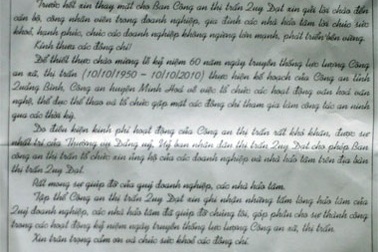 Trước hết xin thay mặt cho Ban Công an thị trấn Quy Đạt xin gửi lời chào đến
cán bộ, công nhân viên trong doanh nghiệp, gia đình các nhà hảo tâm lời chúc sức
khoẻ, hạnh phúc, chúc các doanh nghiệp không ngừng lớn mạnh, phát triển bền vững.
Kính thưa các đồng chí!
Để thiết thực chào mừng lễ kỷ niệm 60 năm ngày truyền thống lực lượng Công
an xã, thị trấn (10/10/1950 – 10/10/2010) thực hiện kế hoạch của Công an tỉnh
Quảng Bình, Công an huyện Minh Hoá về việc tổ chức các hoạt động văn hoá văn
nghệ, thể dục thể thao và tổ chức gặp mặt các đồng chí tham gia làm công tác an ninh
qua các thời kỳ.
Do điều kiện kinh phí hoạt động của Công an thị trấn rất khó khăn, được sự
nhất trí của Thường vụ Đảng uỷ, Uỷ ban nhân dân thị trấn Quy Đạt cho phép Ban
công an thị trấn tổ chức xin ủng hộ của các doanh nghiệp và nhà hảo tâm trên địa bàn
thị trấn Quy Đạt.
Rất mong sự giúp đỡ của quý doanh nghiệp, các nhà hảo tâm.
Tập thể Công an thị trấn Quy Đạt xin ghi nhận những tấm lòng hảo tâm của
Quý doanh nghiệp, các nhà hảo tâm đã giúp đỡ chúng tôi, góp phần cho sự thành công
trong các hoạt động kỷ niệm ngày truyền thống lực lượng Công an xã, thị trấn.
Xin trân trọng cảm ơn và chúc sức khoẻ các đồng chí.